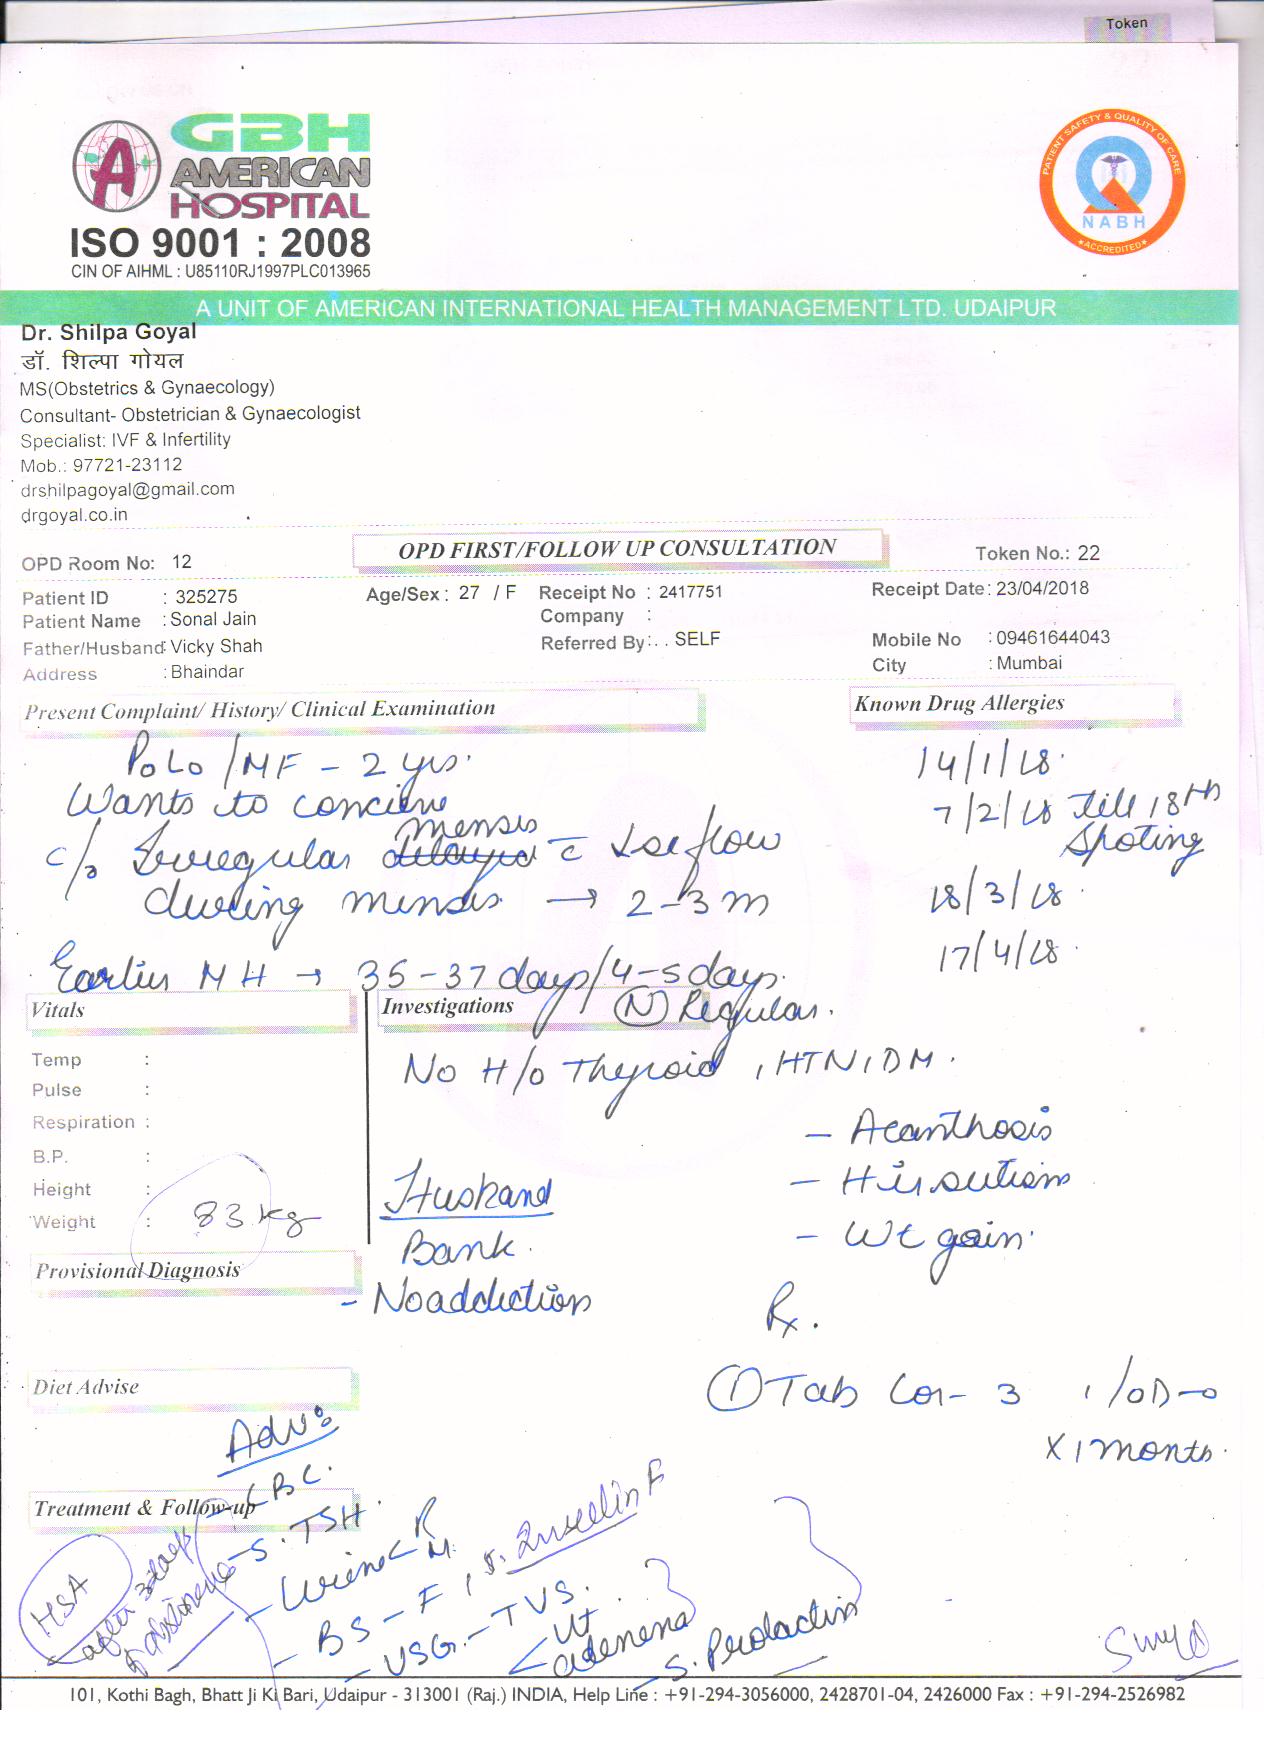 Token
GBH
AMERICAN
HOSPITAL
ISO 9001 : 2008
CIN OF AIHML : U85110RJ1997PLC013965
PATIENT SAFETY & QUALITY OF CARE
NABH
ACCREDITED
A UNIT OF AMERICAN INTERNATIONAL HEALTH MANAGEMENT LTD. UDAIPUR
Dr. Shilpa Goyal
डॉ. शिल्पा गोयल
MS(Obstetrics & Gynaecology)
Consultant- Obstetrician & Gynaecologist
Specialist: IVF & Infertility
Mob.: 97721-23112
drshilpagoyal@gmail.com
drgoyal.co.in
OPD Room No: 12 OPD FIRST/FOLLOW UP CONSULTATION Token No.: 22
Patient ID : 325275 Age/Sex : 27 / F Receipt No : 2417751 Receipt Date: 23/04/2018
Patient Name : Sonal Jain Company :
Father/Husband: Vicky Shah Referred By:. . SELF Mobile No : 09461644043
Address : Bhaindar City : Mumbai
Present Complaint/ History/ Clinical Examination Known Drug Allergies
PoLo /MF - 2 yrs. 14/1/18.
Wants to concieve 7/2/18 till 18th
Spoting
c/o Irregular mensis c flow
during mensis → 2-3 m 18/3/18.
Earlier MH → 35-37 days/4-5 days. 17/4/18.
Vitals Investigations (N) Regular.
Temp : No H/o Thyroid , HTN, DM.
Pulse :
Respiration : - Acanthosis
B.P. :
Height : Husband - Hirsutism
Weight : 83 kg Bank. - Wt gain.
Provisional Diagnosis - No addiction
Rx.
Diet Advise ① Tab Cor- 3 1/OD
x 1 months.
Adv:
Treatment & Follow-up - CBC.
- S. TSH.
- Urine R M
- BS - F , S. Insulin F
- USG. - TVS.
Ut
adenexa
- S. Prolactin
HSA
after 3 days
abstinence
101, Kothi Bagh, Bhatt Ji Ki Bari, Udaipur - 313001 (Raj.) INDIA, Help Line : +91-294-3056000, 2428701-04, 2426000 Fax : +91-294-2526982